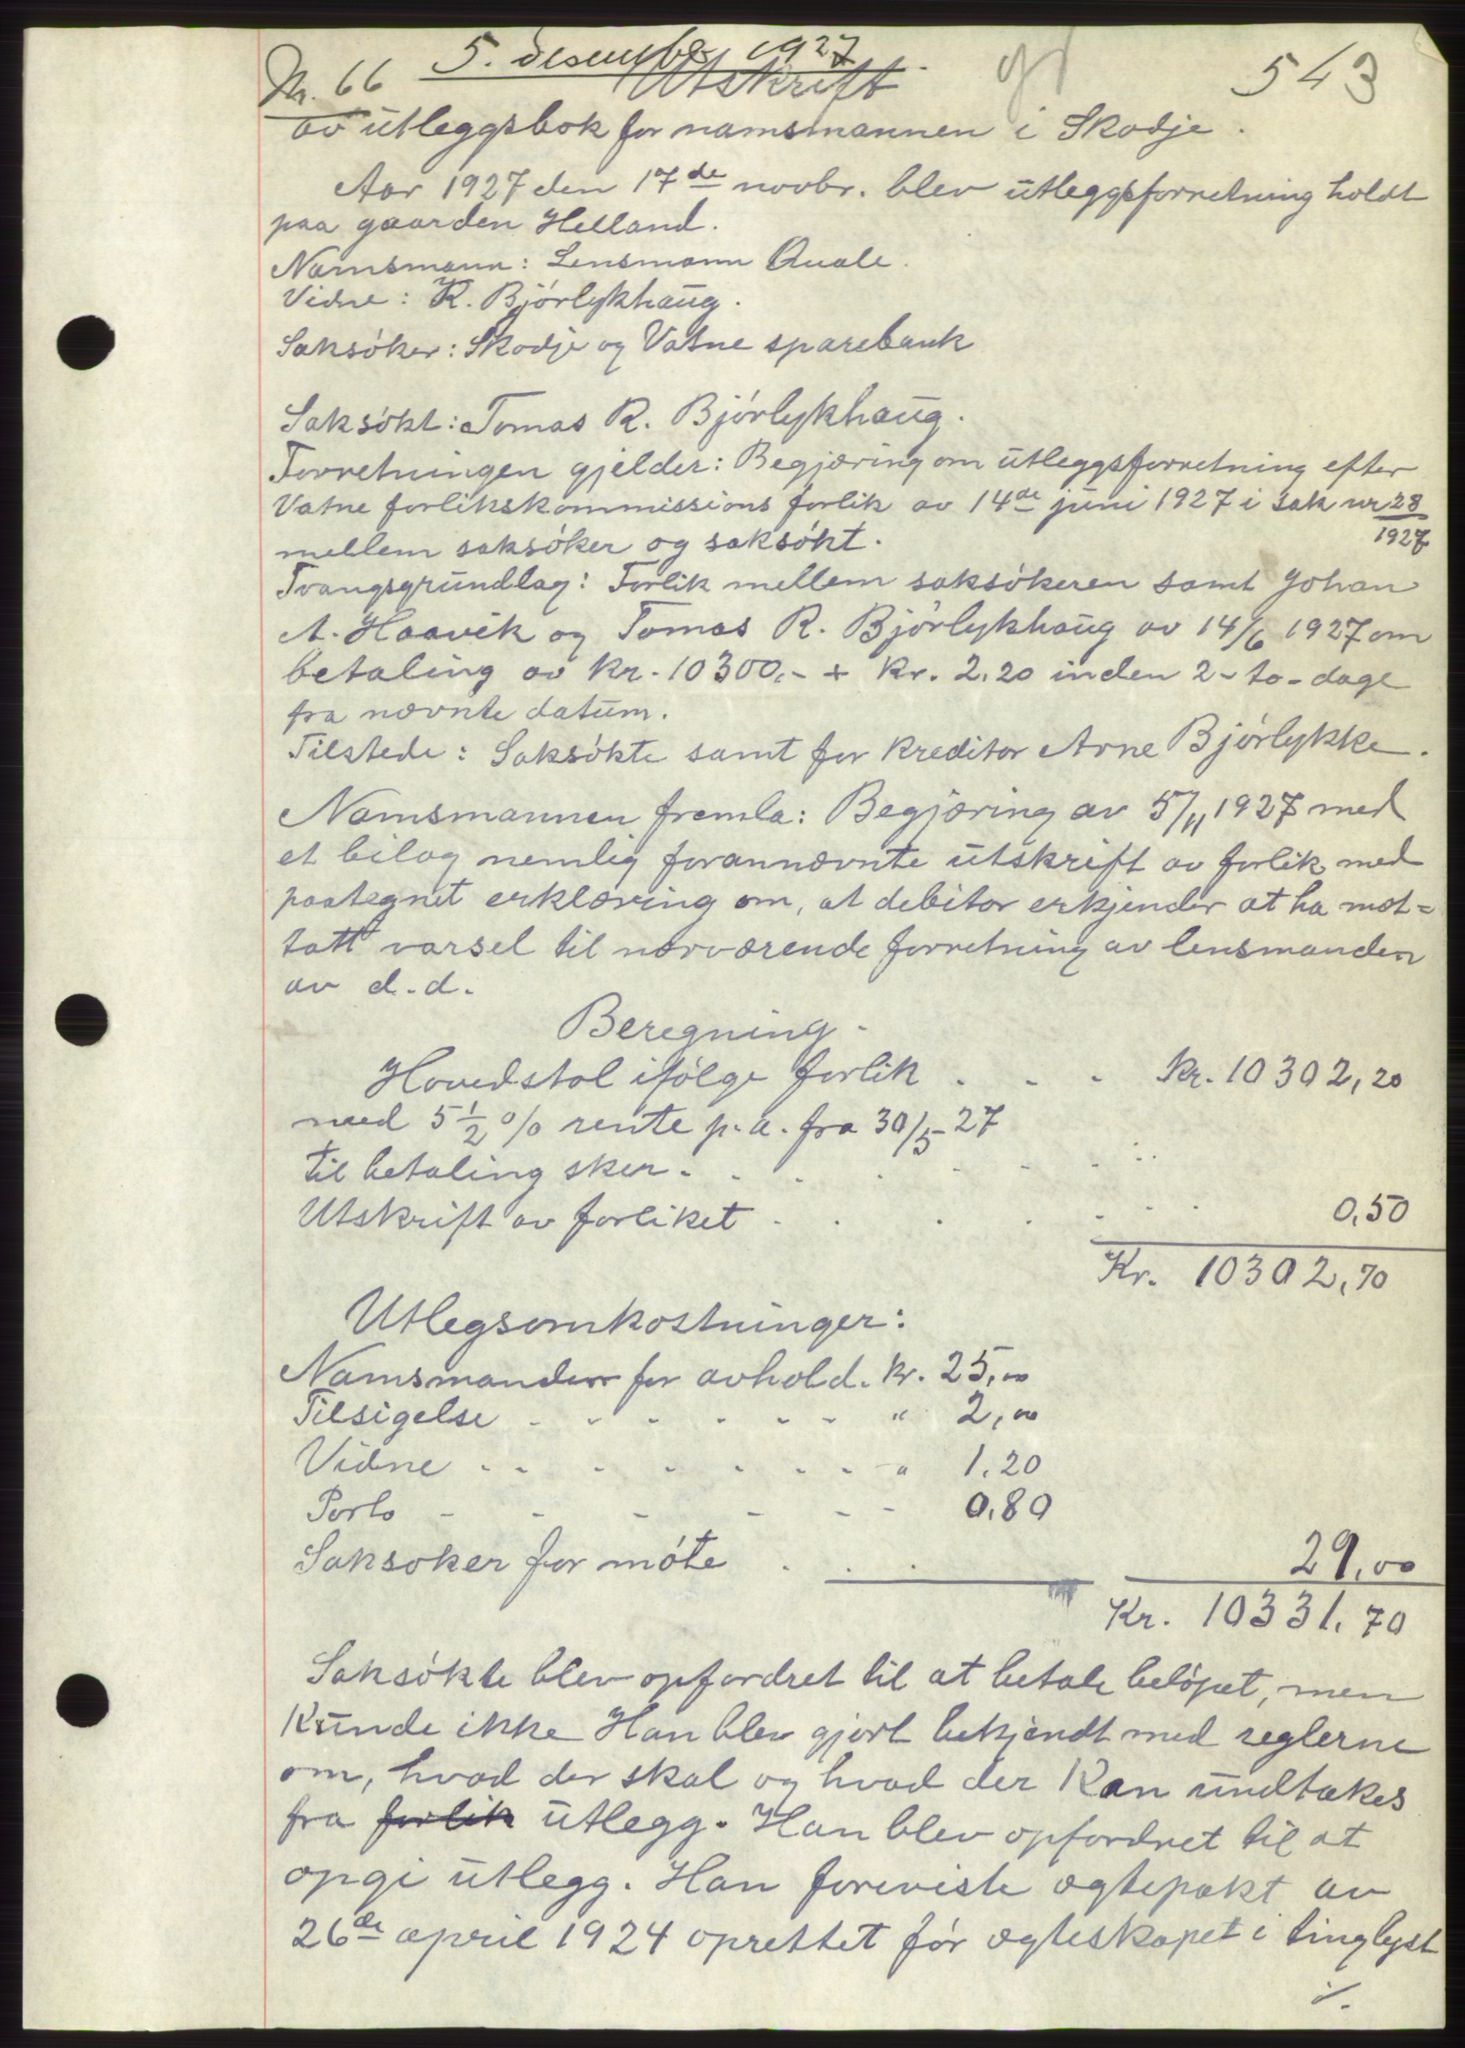 Nr. 66 5. desember 1927. 543
Utskrift
av utleggsbok for namsmannen i Skodje.
Aar 1927 den 17de novbr. blev utleggsforretning holdt
paa gaarden Helland.
Namsmann: Lensmann Quale.
Vidne: K. Bjórlykhaug.
Saksóker: Skodje og Vatne sparebank
Saksókt: Tomas R. Bjórlykhaug.
Forretningen gjelder: Begjæring om utleggsforretning efter
Vatne forlikskommissions forlik av 14de juni 1927 i sak nr 28/1927
mellem saksóker og saksókt.
Tvangsgrundlag: Forlik mellem saksókeren samt Johan
A. Haavik og Tomas R. Bjórlykhaug av 14/6 1927 om
betaling av kr. 10300,- + kr. 2,20 inden 2 - to - dage
fra nævnte datum.
Tilstede: Saksókte samt for kreditor Arne Bjórlykke.
Namsmannen fremla: Begjæring av 5/11 1927 med
et bilag nemlig forannævnte utskrift av forlik med
paategnet erklæring om, at debitor erkjender at ha mot=
tatt varsel til nærværende forretning av lensmanden
av d.d.
Beregning.
Hovedstol ifólge forlik . . . kr. 10302,20
med 5 1/2 % rente p.a. fra 30/5-27
til betaling sker. . . . . . .
Utskrift av forliket . . . . . . . 0,50
Kr. 10302,70
Utlegsomkostninger:
Namsmanden for avhold. kr. 25,00
Tilsigelse - - - - - - " 2,00
Vidne - - - - - - - - " 1.20
Porto - - - - - - - 0.80
Saksoker for móte . . . 29,00
Kr. 10331.70
Saksókte blev opfordret til at betale belópet, men
kunde ikke Han blev gjort bekjendt med reglerne
om, hvad der skal og hvad der kan undtakes
fra forlik utlegg. Han blev opfordret til at
opgi utlegg. Han foreviste ægtepakt av
26de april 1924 oprettet fór ægteskapet i tinglyst
./.